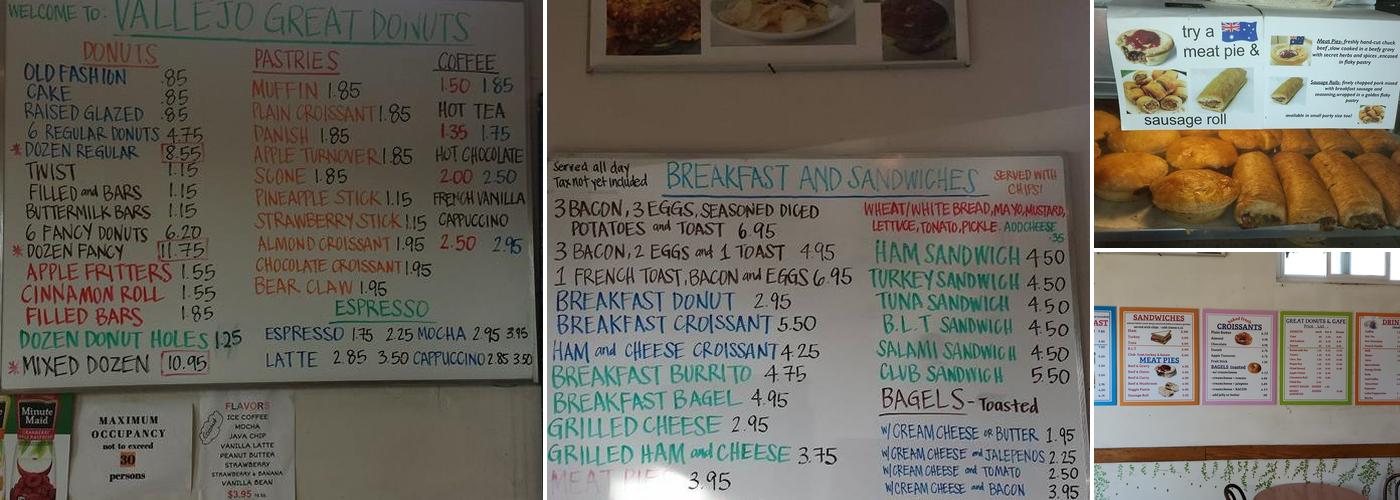 WELCOME TO: VALLEJO GREAT DONUTS
DONUTS
OLD FASHION .85
CAKE .85
RAISED GLAZED .85
6 REGULAR DONUTS 4.75
*DOZEN REGULAR 8.55
TWIST 1.15
FILLED and BARS 1.15
BUTTERMILK BARS 1.15
6 FANCY DONUTS 6.20
*DOZEN FANCY 11.75
APPLE FRITTERS 1.55
CINNAMON ROLL 1.55
FILLED BARS 1.85
DOZEN DONUT HOLES 1.25
*MIXED DOZEN 10.95
PASTRIES
MUFFIN 1.85
PLAIN CROISSANT 1.85
DANISH 1.85
APPLE TURNOVER 1.85
SCONE 1.85
PINEAPPLE STICK 1.15
STRAWBERRY STICK 1.15
ALMOND CROISSANT 1.95
CHOCOLATE CROISSANT 1.95
BEAR CLAW 1.95
COFFEE
1.50 1.85
HOT TEA
1.35 1.75
HOT CHOCOLATE
2.00 2.50
FRENCH VANILLA
CAPPUCCINO
2.50 2.95
ESPRESSO
ESPRESSO 1.75 2.25 MOCHA 2.95 3.95
LATTE 2.85 3.50 CAPPUCCINO 2.85 3.50
Minute
Maid
MAXIMUM
OCCUPANCY
not to exceed
30
persons
FLAVORS
ICE COFFEE
MOCHA
JAVA CHIP
VANILLA LATTE
PEANUT BUTTER
STRAWBERRY
STRAWBERRY & BANANA
VANILLA BEAN
$3.95
Served all day
Tax not yet included
BREAKFAST AND SANDWICHES
SERVED WITH
CHIPS!
3 BACON, 3 EGGS, SEASONED DICED
POTATOES and TOAST 6.95
3 BACON, 2 EGGS and 1 TOAST 4.95
1 FRENCH TOAST, BACON and EGGS 6.95
BREAKFAST DONUT 2.95
BREAKFAST CROISSANT 5.50
HAM and CHEESE CROISSANT 4.25
BREAKFAST BURRITO 4.75
BREAKFAST BAGEL 4.95
GRILLED CHEESE 2.95
GRILLED HAM and CHEESE 3.75
MEAT PIES 3.95
WHEAT/WHITE BREAD, MAYO, MUSTARD,
LETTUCE, TOMATO, PICKLE. ADD CHEESE
.35
HAM SANDWICH 4.50
TURKEY SANDWICH 4.50
TUNA SANDWICH 4.50
B.L.T SANDWICH 4.50
SALAMI SANDWICH 4.50
CLUB SANDWICH 5.50
BAGELS - Toasted
W/ CREAM CHEESE OR BUTTER 1.95
W/ CREAM CHEESE and JALEPENOS 2.25
W/ CREAM CHEESE and TOMATO 2.50
W/ CREAM CHEESE and BACON 3.95
try a
meat pie &
sausage roll
Meat Pies- freshly hand-cut chuck
beef, slow cooked in a beefy gravy
with secret herbs and spices, encased
in flaky pastry
Sausage Rolls- finely chopped pork mixed
with breakfast sausage and
seasoning, wrapped in a golden flaky
pastry
available in small party size too!
SANDWICHES
MEAT PIES
CROISSANTS
BAGELS
GREAT DONUTS & CAFE